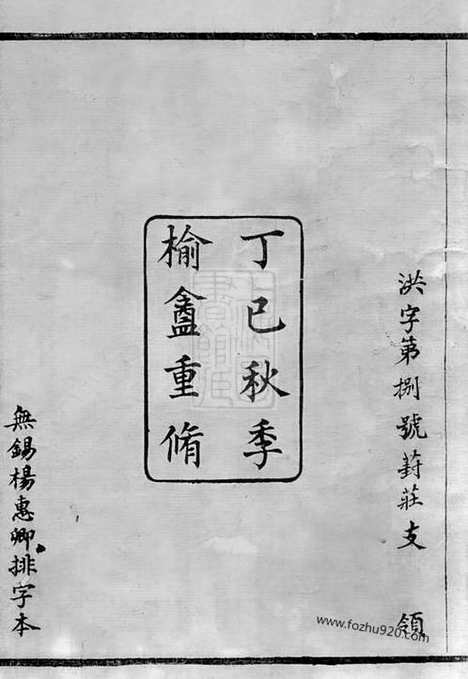 洪字第捌號葑莊支 領
丁巳秋季
榆盦重脩
無錫楊惠卿排字本
www.fozhu920.com